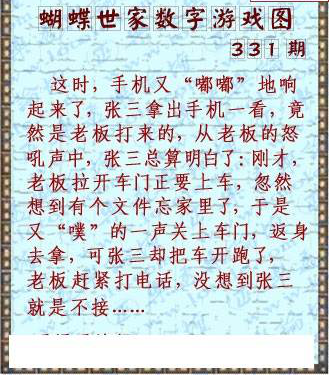 蝴蝶世家数字游戏图
331 期
这时，手机又“嘟嘟”地响
起来了，张三拿出手机一看，竟
然是老板打来的，从老板的怒
吼声中，张三总算明白了：刚才，
老板拉开车门正要上车，忽然
想到有个文件忘家里了，于是
又“噗”的一声关上车门，返身
去拿，可张三却把车开跑了，
老板赶紧打电话，没想到张三
就是不接……